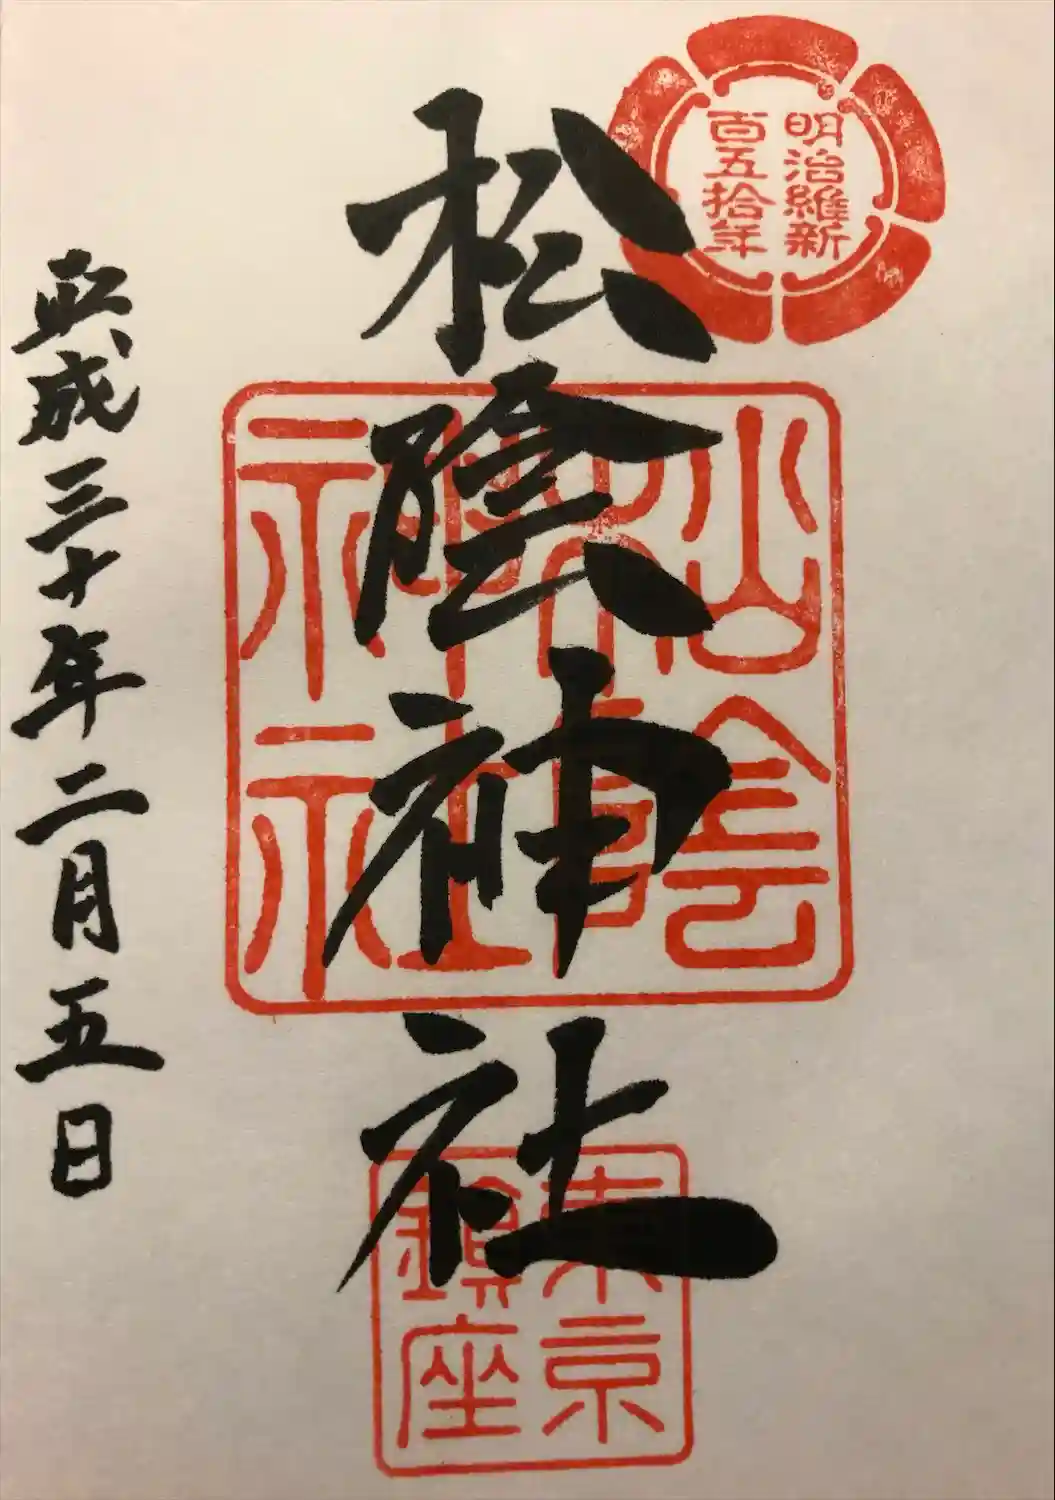 明治維新
百五拾年
松陰神社
松陰
神社
東京
鎮座
平成三十年二月五日